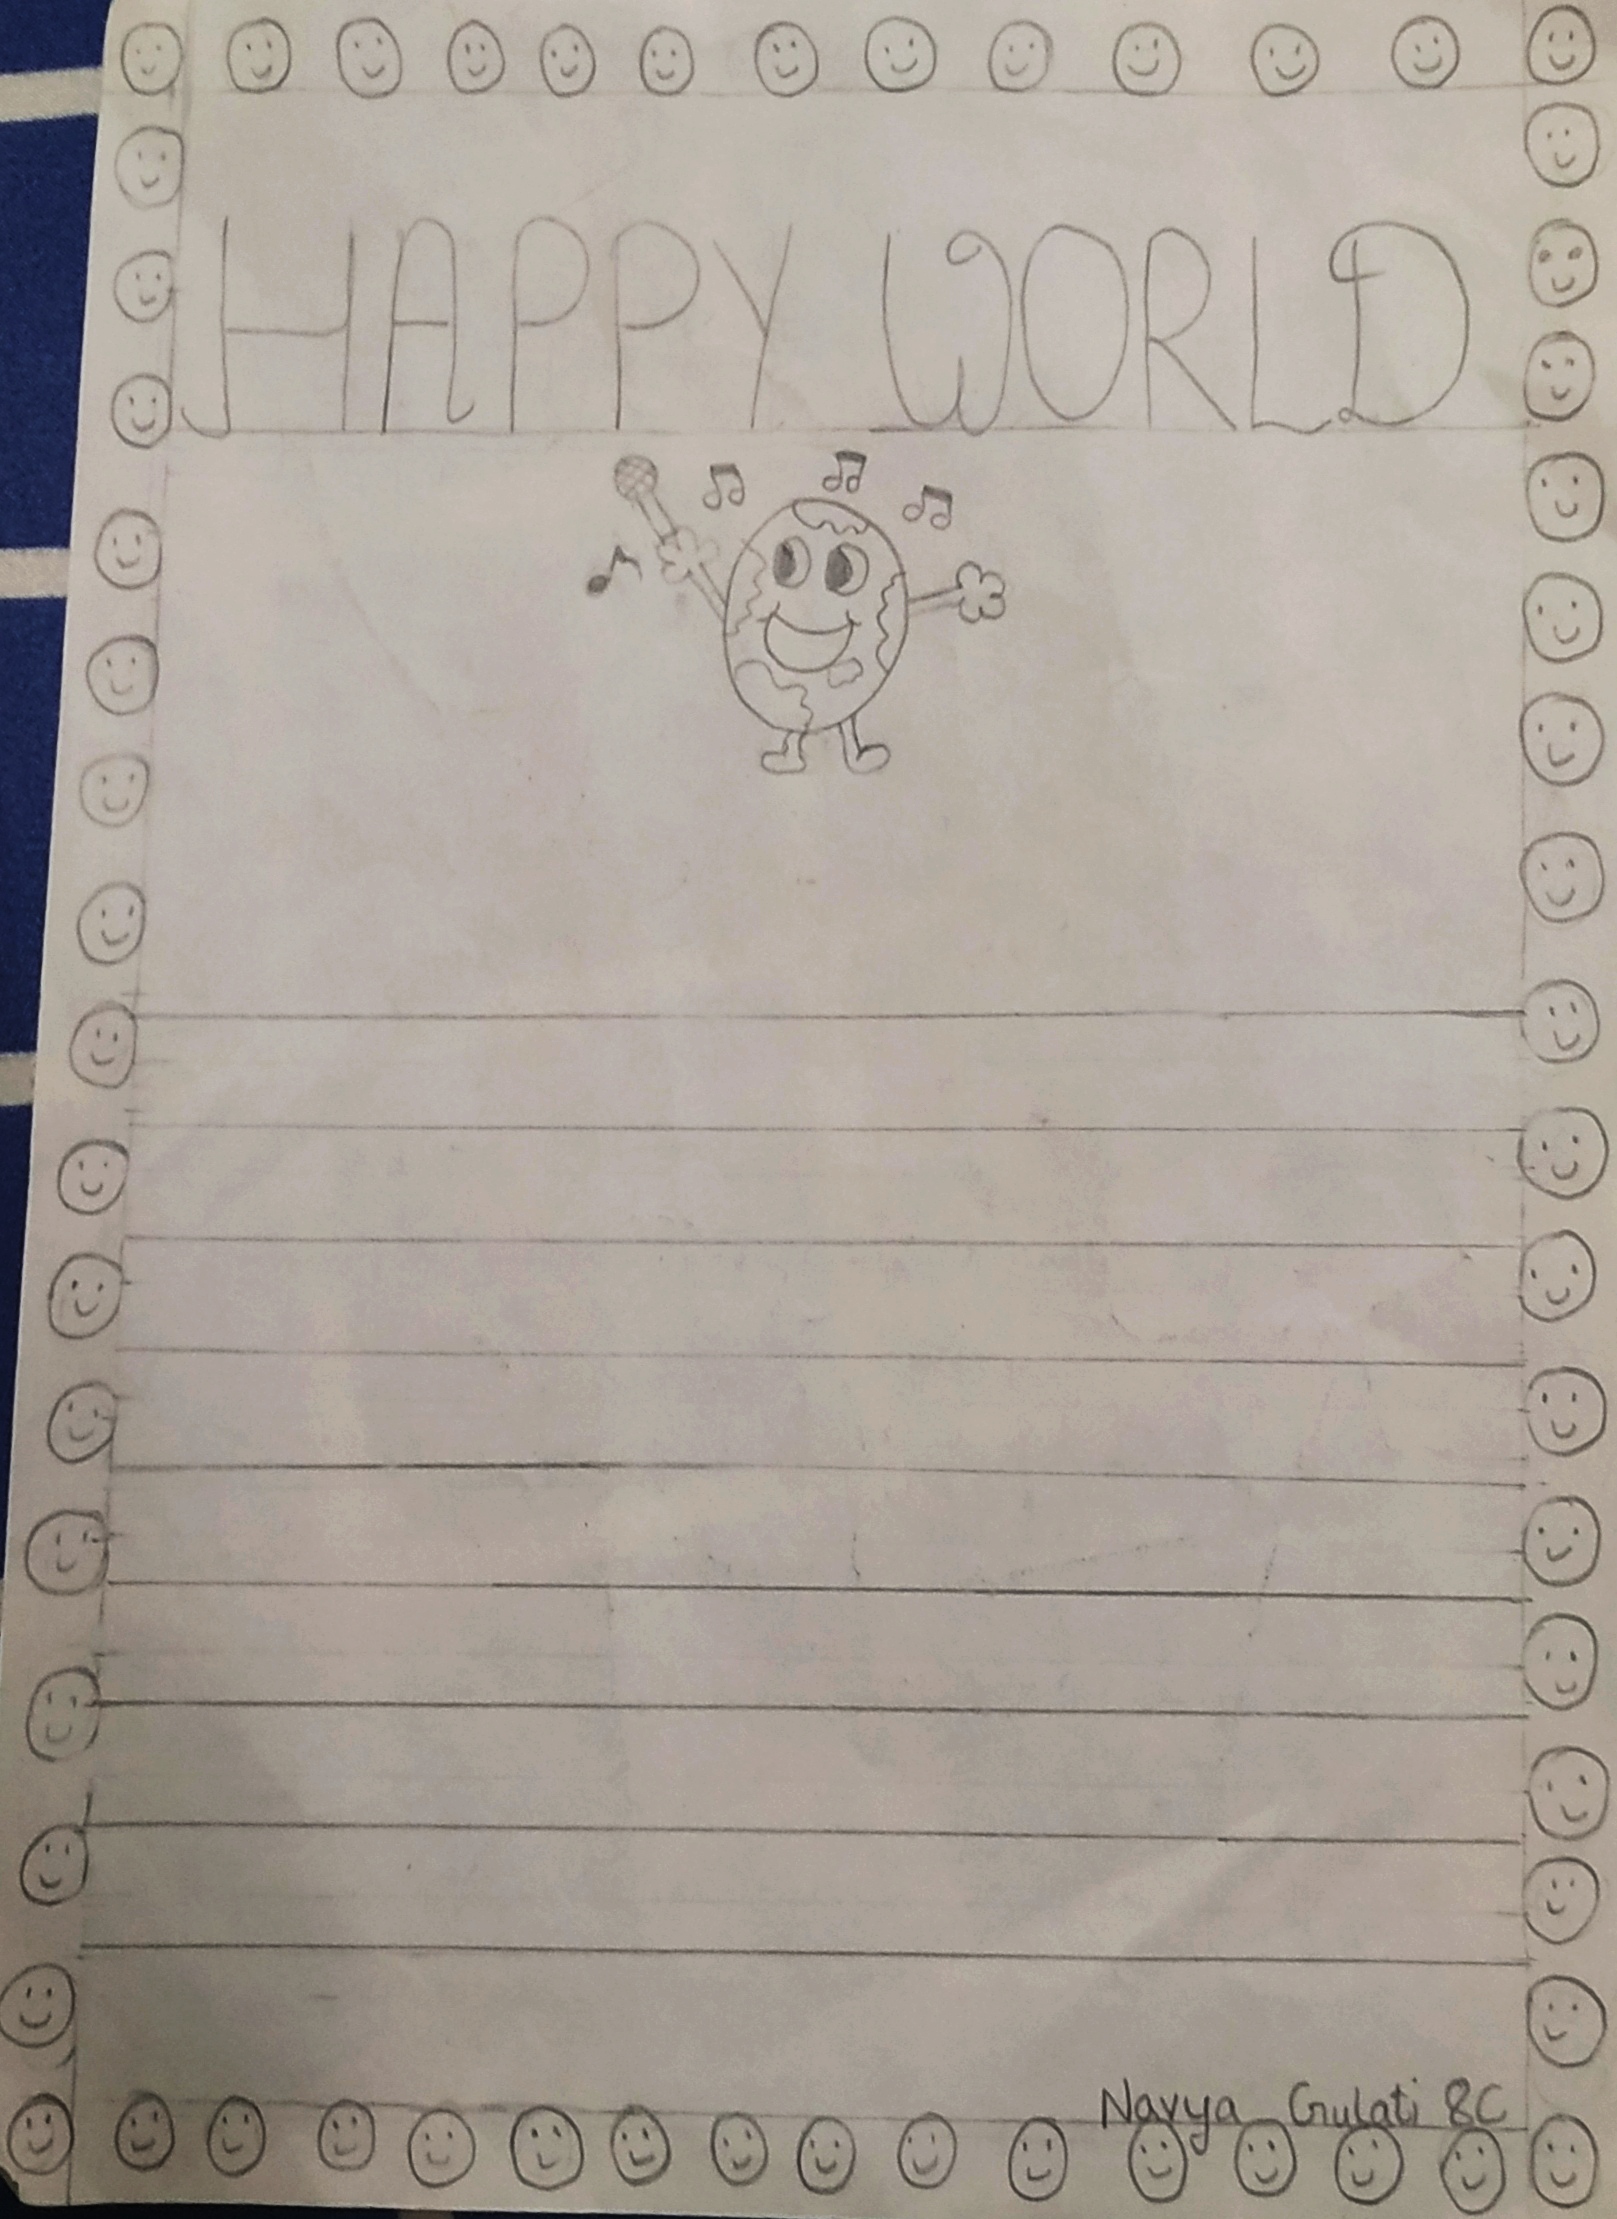 HAPPY WORLD
Navya Gulati 8C